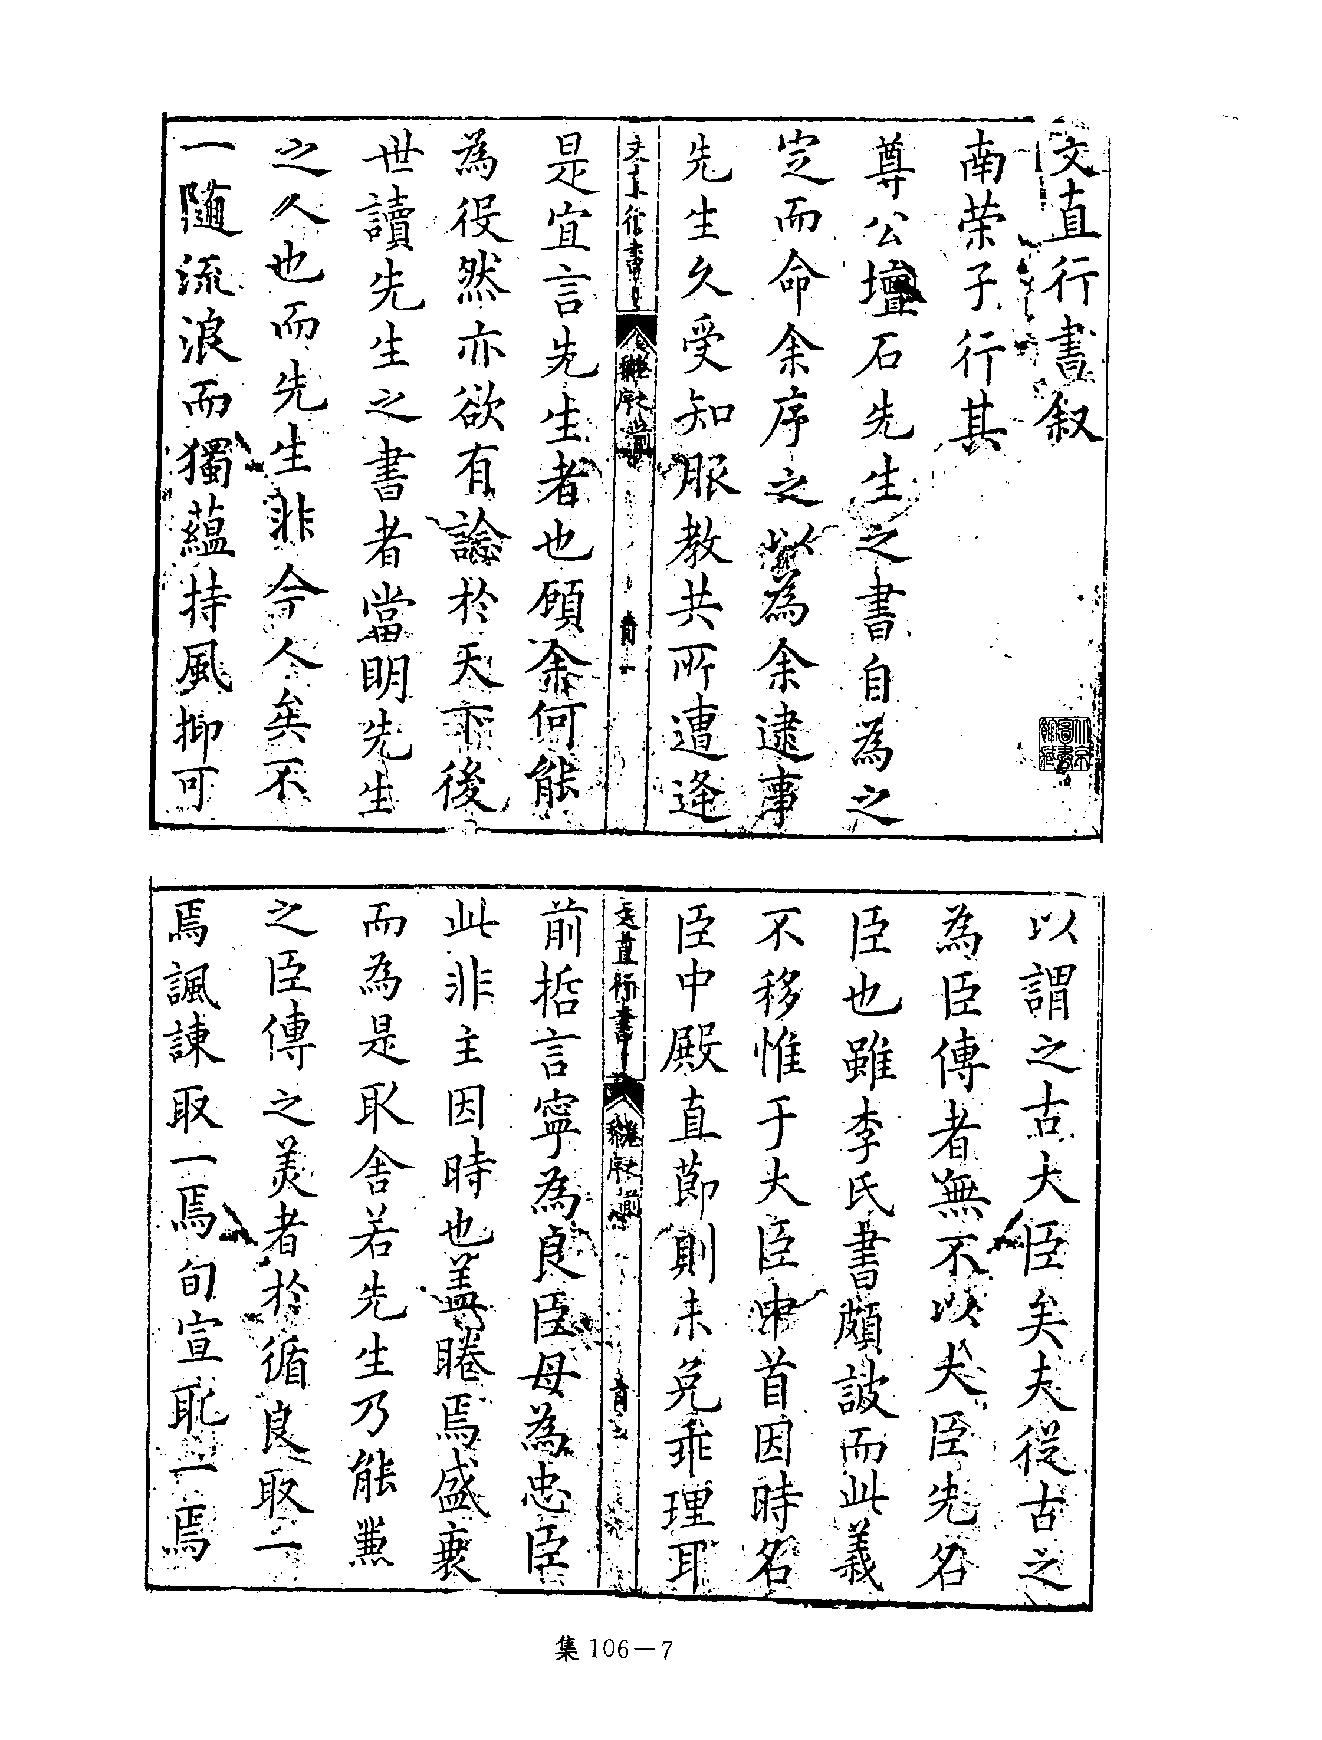 文直行書叙
南荣子行其
尊公壇石先生之書自為之
定而命余序之以為余逮事
先生久受知服教共所遭逢
是宜言先生者也顧余何能
為役然亦欲有諗於天下後
世讀先生之書者當明先生
之人也而先生非今人矣不
一隨流浪而獨蘊持風抑可
以謂之古大臣矣夫從古之
為臣傳者無不以大臣先名
臣也雖李氏書頗詖而此義
不移惟于大臣中首因時名
臣中殿直莭則未免乖理耳
文直行書
前哲言寧為良臣毋為忠臣
此非主因時也盖睠焉盛衰
而為是取舍若先生乃能兼
之臣傳之美者於循良取二
焉諷諫取一焉旬宣取二焉
集 106—7